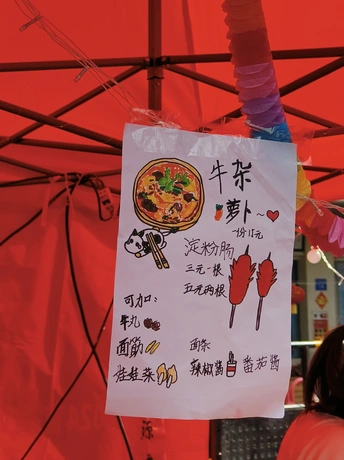 牛杂
萝卜~
一份15元
淀粉肠
三元一根
五元两根
可加:
牛丸
面筋
娃娃菜
面条
辣椒酱 番茄酱